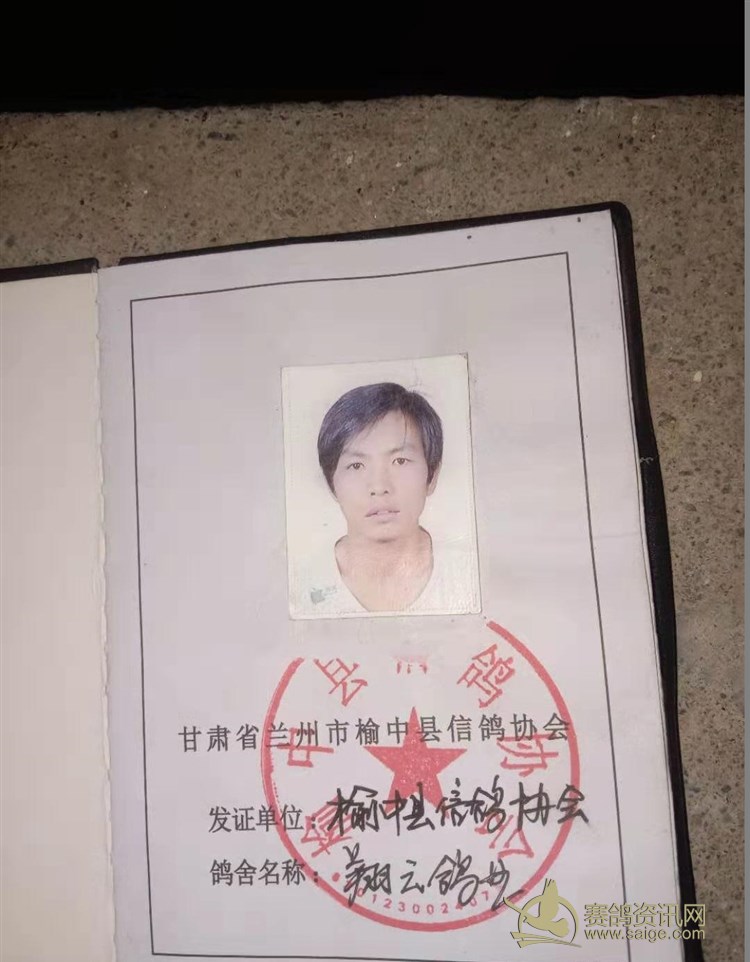 榆中县信鸽协会
甘肃省兰州市榆中县信鸽协会
发证单位：榆中县信鸽协会
鸽舍名称：翔云鸽舍
赛鸽资讯网
www.saige.com